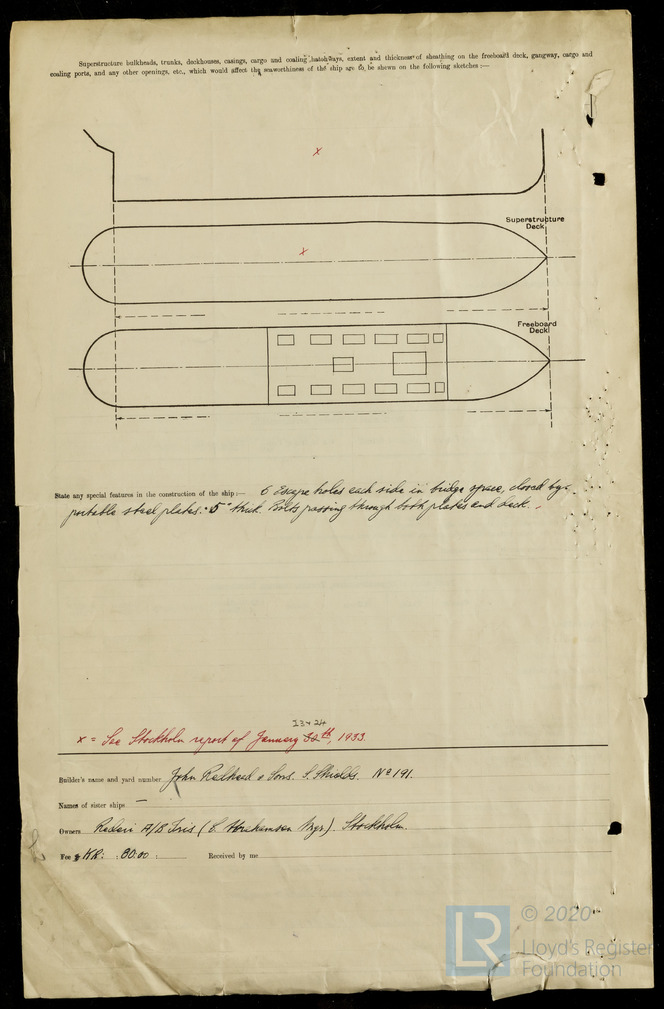 Superstructure bulkheads, trunks, deckhouses, casings, cargo and coaling hatchways, extent and thickness of sheathing on the freeboard deck, gangway, cargo and
coaling ports, and any other openings, etc., which would affect the seaworthiness of the ship are to be shown on the following sketches :—
x
Superstructure
Deck
x
Freeboard
Deck
State any special features in the construction of the ship :— 6 Escape holes each side in bridge space, closed by
portable steel plates. .5" thick. Bolts passing through both plates and deck.
13 x 24
x = See Stockholm report of January 32th, 1933.
Builder's name and yard number John Redhead & Sons. S. Shields. No 191.
Names of sister ships —
Owners Rederi A/B Iris (E. Abrahamson Mgr). Stockholm.
Fee KR: : 80.00 : Received by me
LR © 2020
Lloyd's Register
Foundation